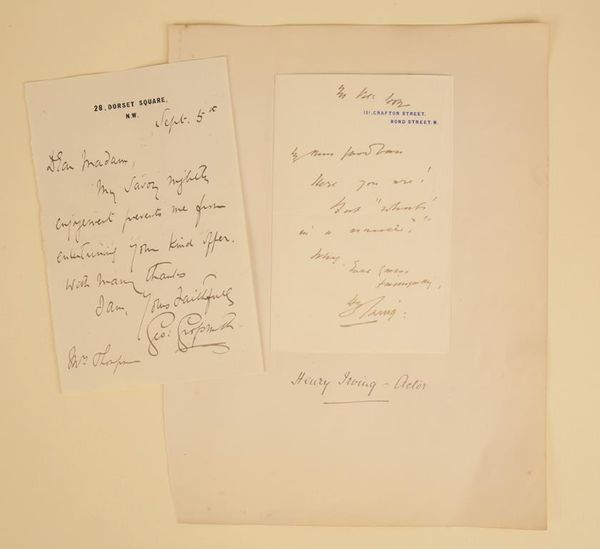 28, DORSET SQUARE,
N.W.
Sept. 5th
Dear Madam,
My Savoy nightly
engagement prevents me from
entertaining your kind offer.
With many thanks
I am, Yours faithfully
Geo: Grossmith
Mrs Thorp
15A, GRAFTON STREET,
BOND STREET. W.
My dear
Here you are!
But "what's
in a name?"
Ever yours
Irving.
Henry Irving - Actor